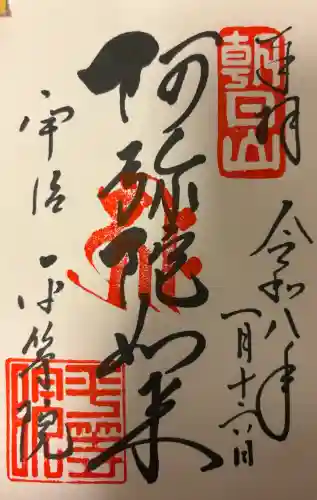 奉拝
朝日山
令和八年
一月十六日
阿弥陀如来
宇治 平等院
平等院印